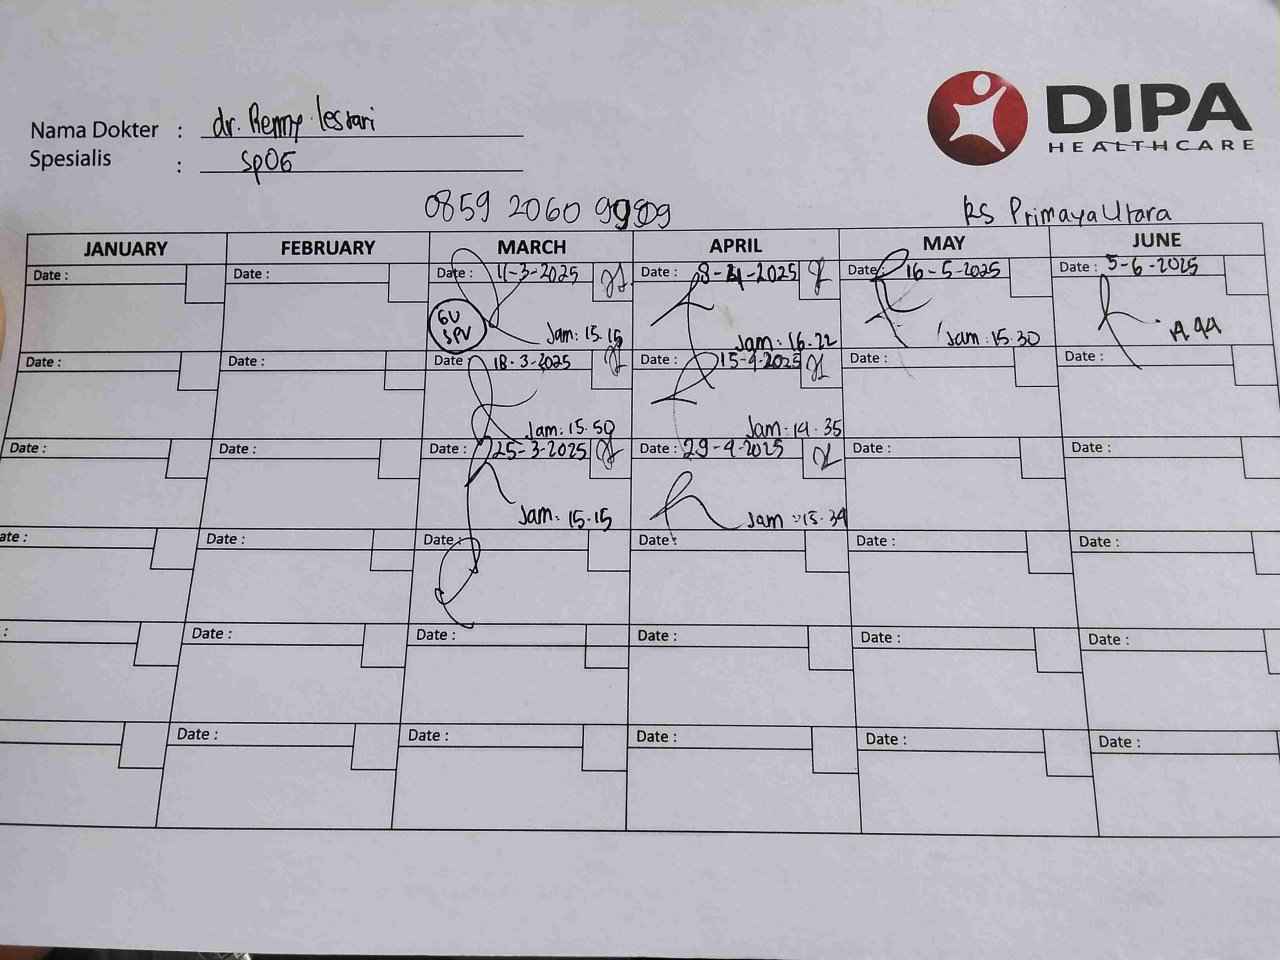 DIPA
HEALTHCARE
Nama Dokter : dr. Renny lestari
Spesialis : SpOG
0859 2060 9989
RS Primaya Utara
JANUARY FEBRUARY MARCH APRIL MAY JUNE
Date : Date : Date : 11-3-2025 Date : 8-4-2025 Date : 16-5-2025 Date : 5-6-2025
GV
SPV
Jam: 15.15 Jam: 16.22 Jam: 15.30
Date : Date : Date : 18-3-2025 Date : 15-4-2025 Date : Date :
Jam: 15.50 Jam: 14.35
Date : Date : Date : 25-3-2025 Date : 29-4-2025 Date : Date :
Jam: 15.15 Jam : 15.34
ate : Date : Date : Date : Date : Date :
: Date : Date : Date : Date : Date :
Date : Date : Date : Date : Date :